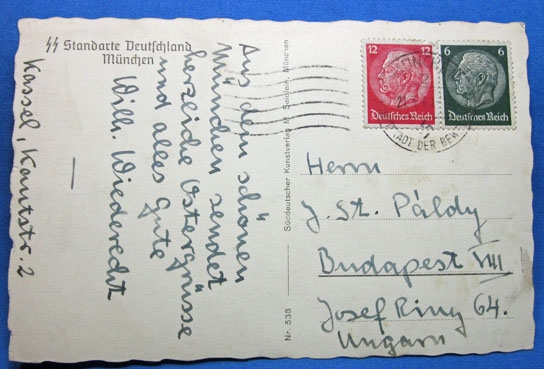 SS Standarte Deutschland
München
Aus dem schönen
München sendet
herzliche Ostergrüsse
und alles Gute
Willi. Wiederecht
Kassel, Kantstr. 2
Nr. 538
Süddeutscher Kunstverlag M. Seidlein, München
12 12
Deutsches Reich
6 6
Deutsches Reich
STADT DER BEW
Herrn
J. St. Páldy
Budapest VIII
Josef Ring 64.
Ungarn